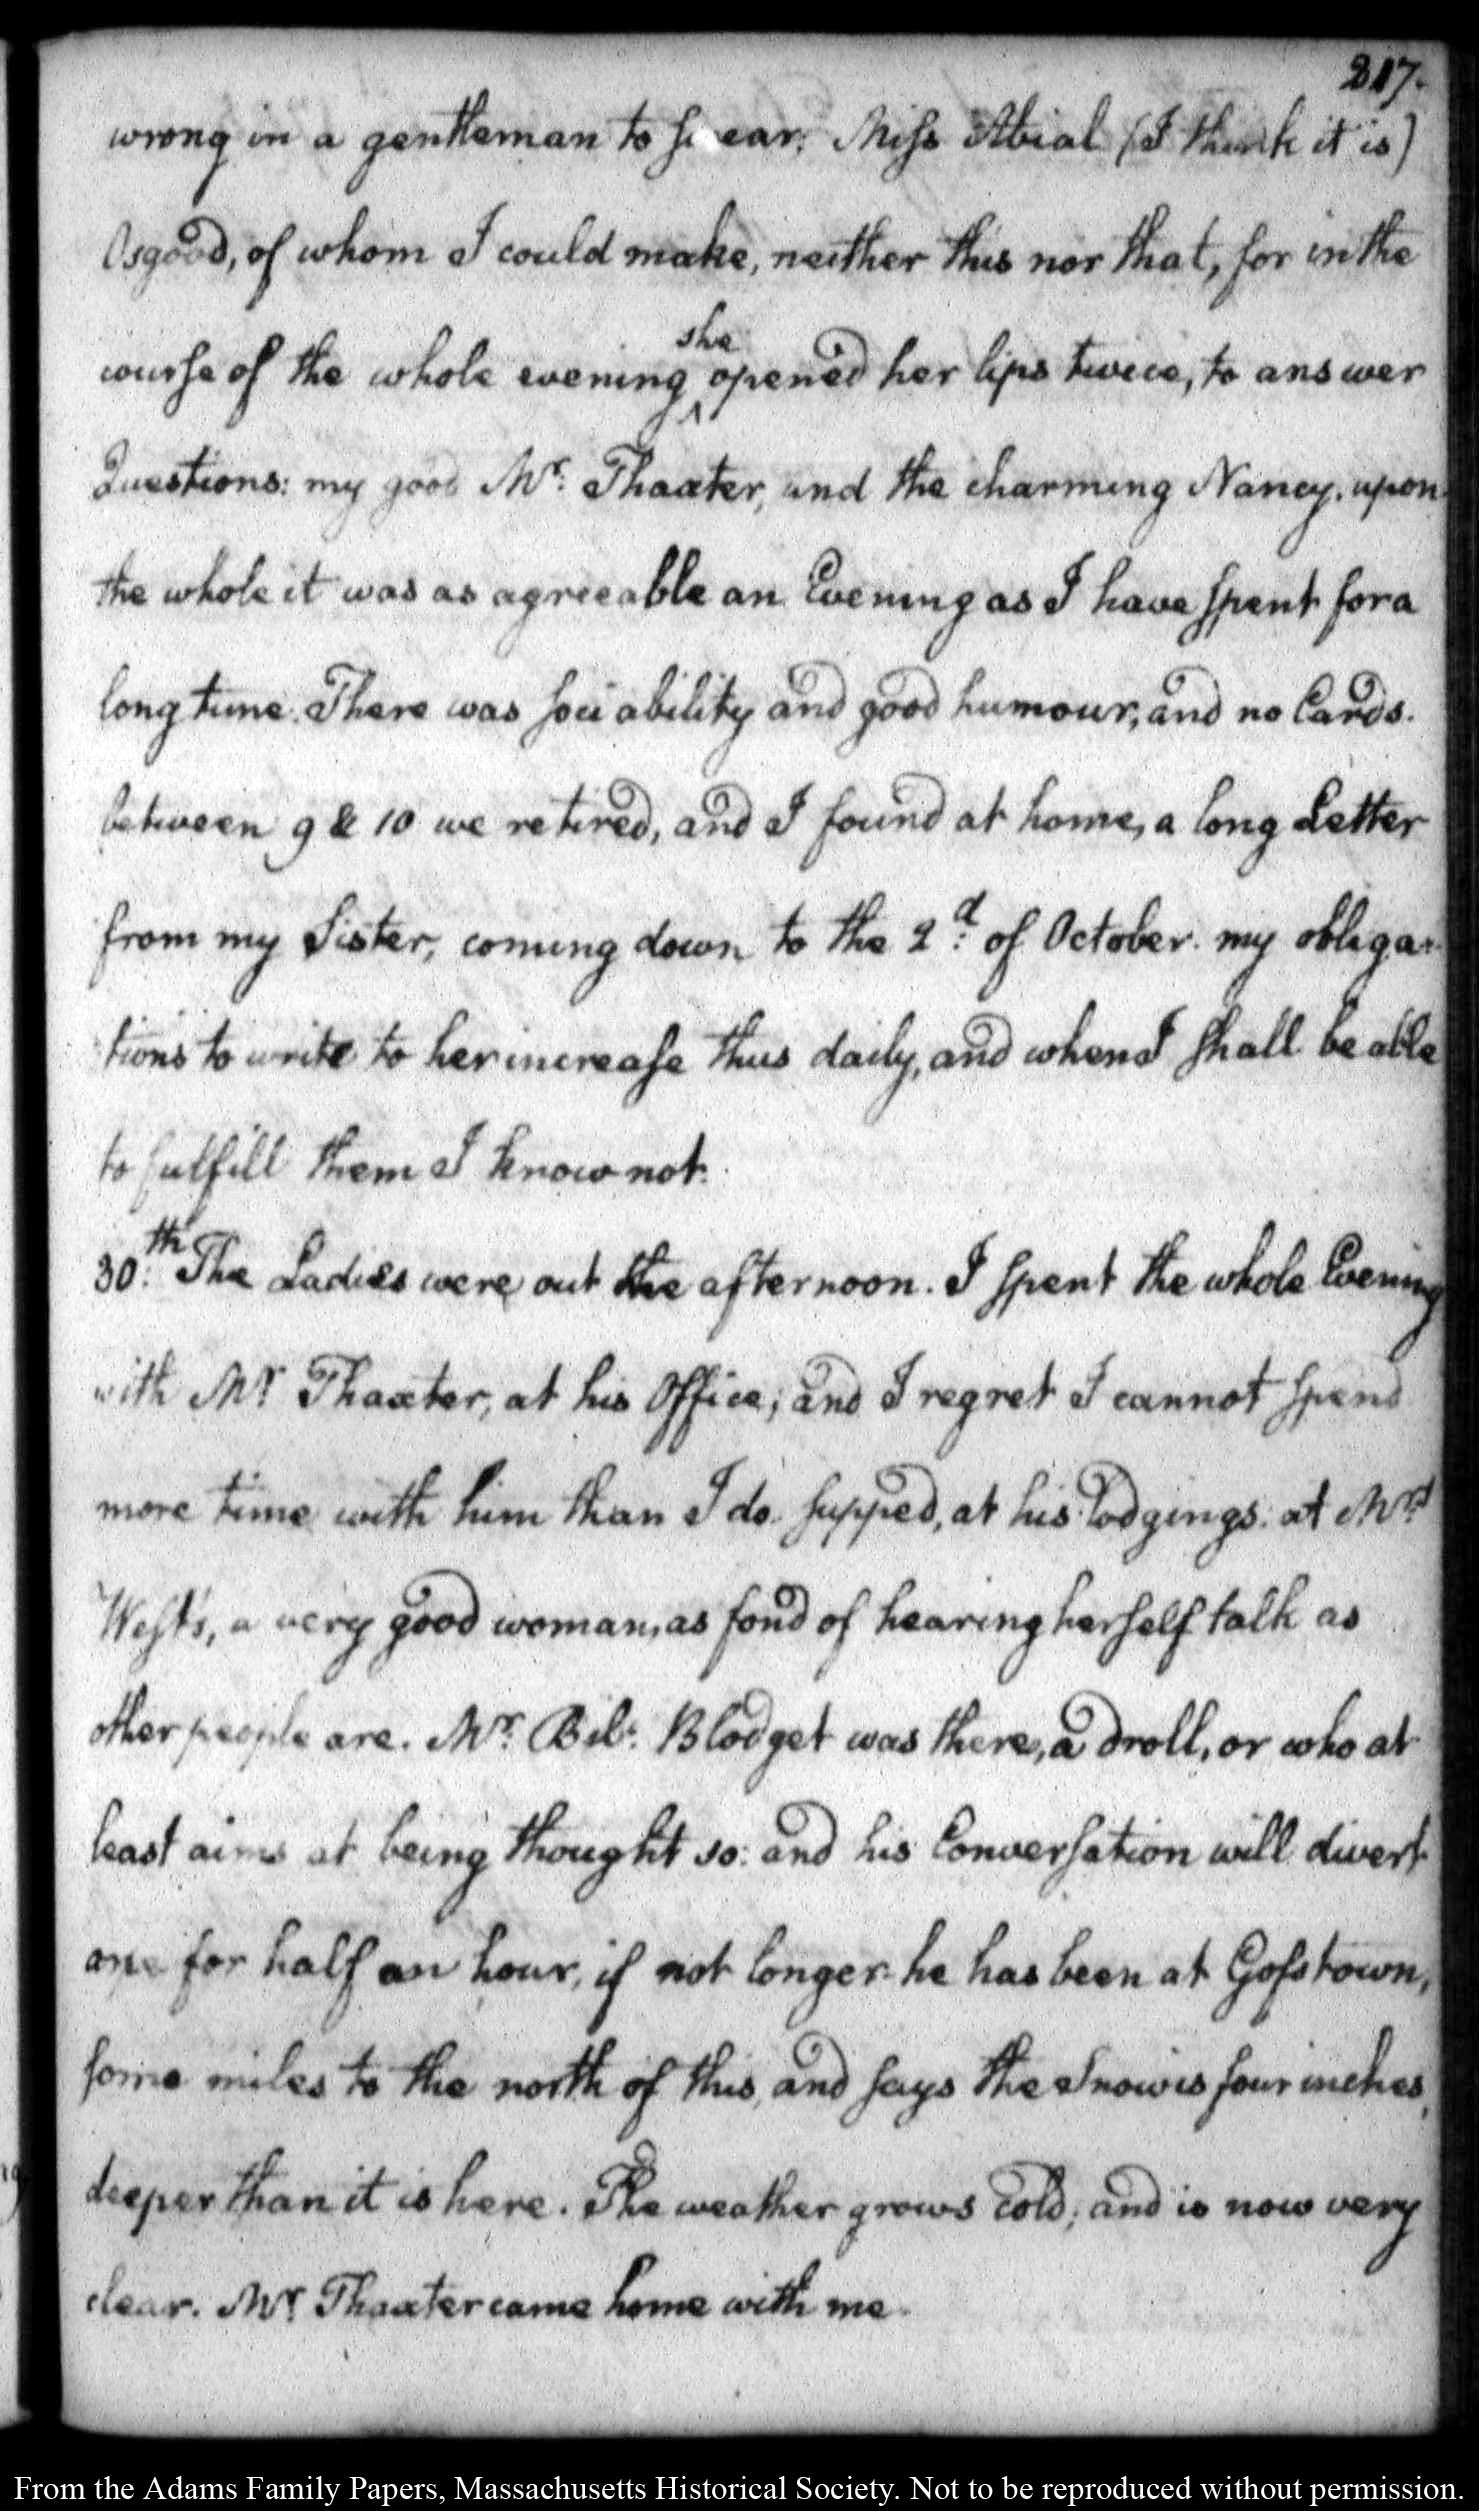 217.
wrong in a gentleman to swear; Miss Abial (I think it is)
Osgood, of whom I could make, neither this nor that, for in the
she
course of the whole evening ^ opened her lips twice, to answer
Questions: my good Mr. Thaxter, and the charming Nancy. upon
the whole it was as agreeable an Evening as I have spent for a
long time. There was sociability and good humour, and no Cards.
between 9 & 10 we retired, and I found at home, a long Letter
from my Sister, coming down to the 2d. of October. my obliga-
tions to write to her increase thus daily, and when I shall be able
to fulfill them I know not.
30.th The Ladies were out the afternoon. I spent the whole Evening
with Mr Thaxter, at his Office; and I regret I cannot spend
more time with him than I do. supped, at his lodgings: at Mrs.
West's, a very good woman, as fond of hearing herself talk as
other people are. Mr. Bil: Blodget was there, a droll, or who at
least aims at being thought so: and his Conversation will divert
one for half an hour, if not longer. he has been at Gofstown,
some miles to the north of this, and says the Snow is four inches,
deeper than it is here. The weather grows cold; and is now very
clear. Mr. Thaxter came home with me.
From the Adams Family Papers, Massachusetts Historical Society. Not to be reproduced without permission.